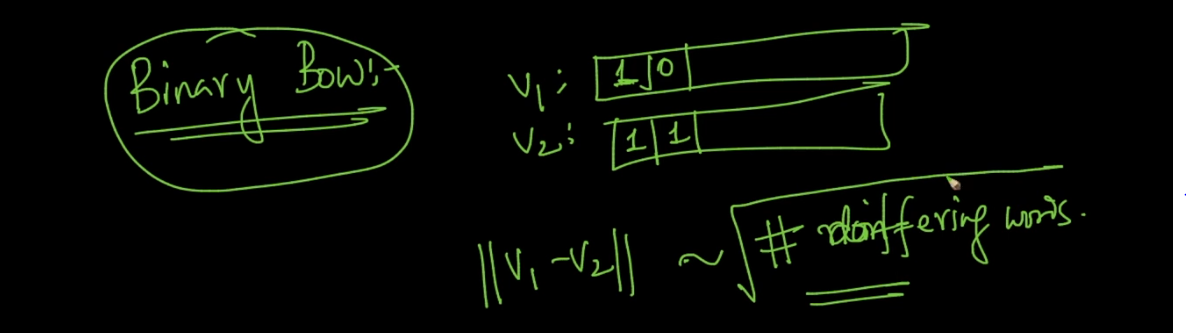 Binary Bow:-
v₁: 1 0
v₂: 1 1
||v₁-v₂|| ~ √# differing words.